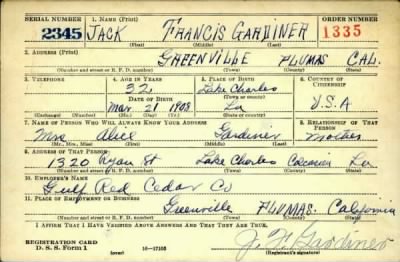 SERIAL NUMBER 1. Name (Print) ORDER NUMBER
2345 JACK FRANCIS GARDINER 1335
(First) (Middle) (Last)
2. Address (Print)
GREENVILLE PLUMAS CAL.
(Number and street or R. F. D. number) (Town) (County) (State)
3. Telephone 4. Age in Years 5. Place of Birth 6. Country of Citizenship
32 Lake Charles
Date of Birth (Town or county)
Mar. 21 1908 La U.S.A
(Exchange) (Number) (Mo.) (Day) (Yr.) (State or country)
7. Name of Person Who Will Always Know Your Address 8. Relationship of That Person
Mrs Alice Gardiner Mother
(Mr., Mrs., Miss) (First) (Middle) (Last)
9. Address of That Person
1320 Ryan St Lake Charles La
(Number and street or R. F. D. number) (Town) (County) (State)
10. Employer's Name
Gulf Red Cedar Co
11. Place of Employment or Business
Greenville PLUMAS. California
(Number and street or R. F. D. number) (Town) (County) (State)
I Affirm That I Have Verified Above Answers and That They Are True.
Registration Card
D. S. S. Form 1 (over) 16—17105 J. F. Gardiner
(Registrant's signature)